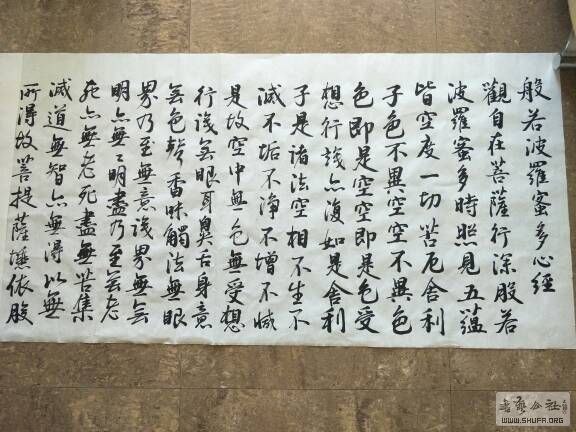 般若波羅蜜多心經
觀自在菩薩行深般若
波羅蜜多時照見五蘊
皆空度一切苦厄舍利
子色不異空空不異色
色即是空空即是色受
想行識亦復如是舍利
子是諸法空相不生不
滅不垢不淨不增不減
是故空中無色無受想
行識無眼耳鼻舌身意
無色聲香味觸法無眼
界乃至無意識界無無
明亦無無明盡乃至無老
死亦無老死盡無苦集
滅道無智亦無得以無
所得故菩提薩埵依般
WWW.SHUFA.ORG